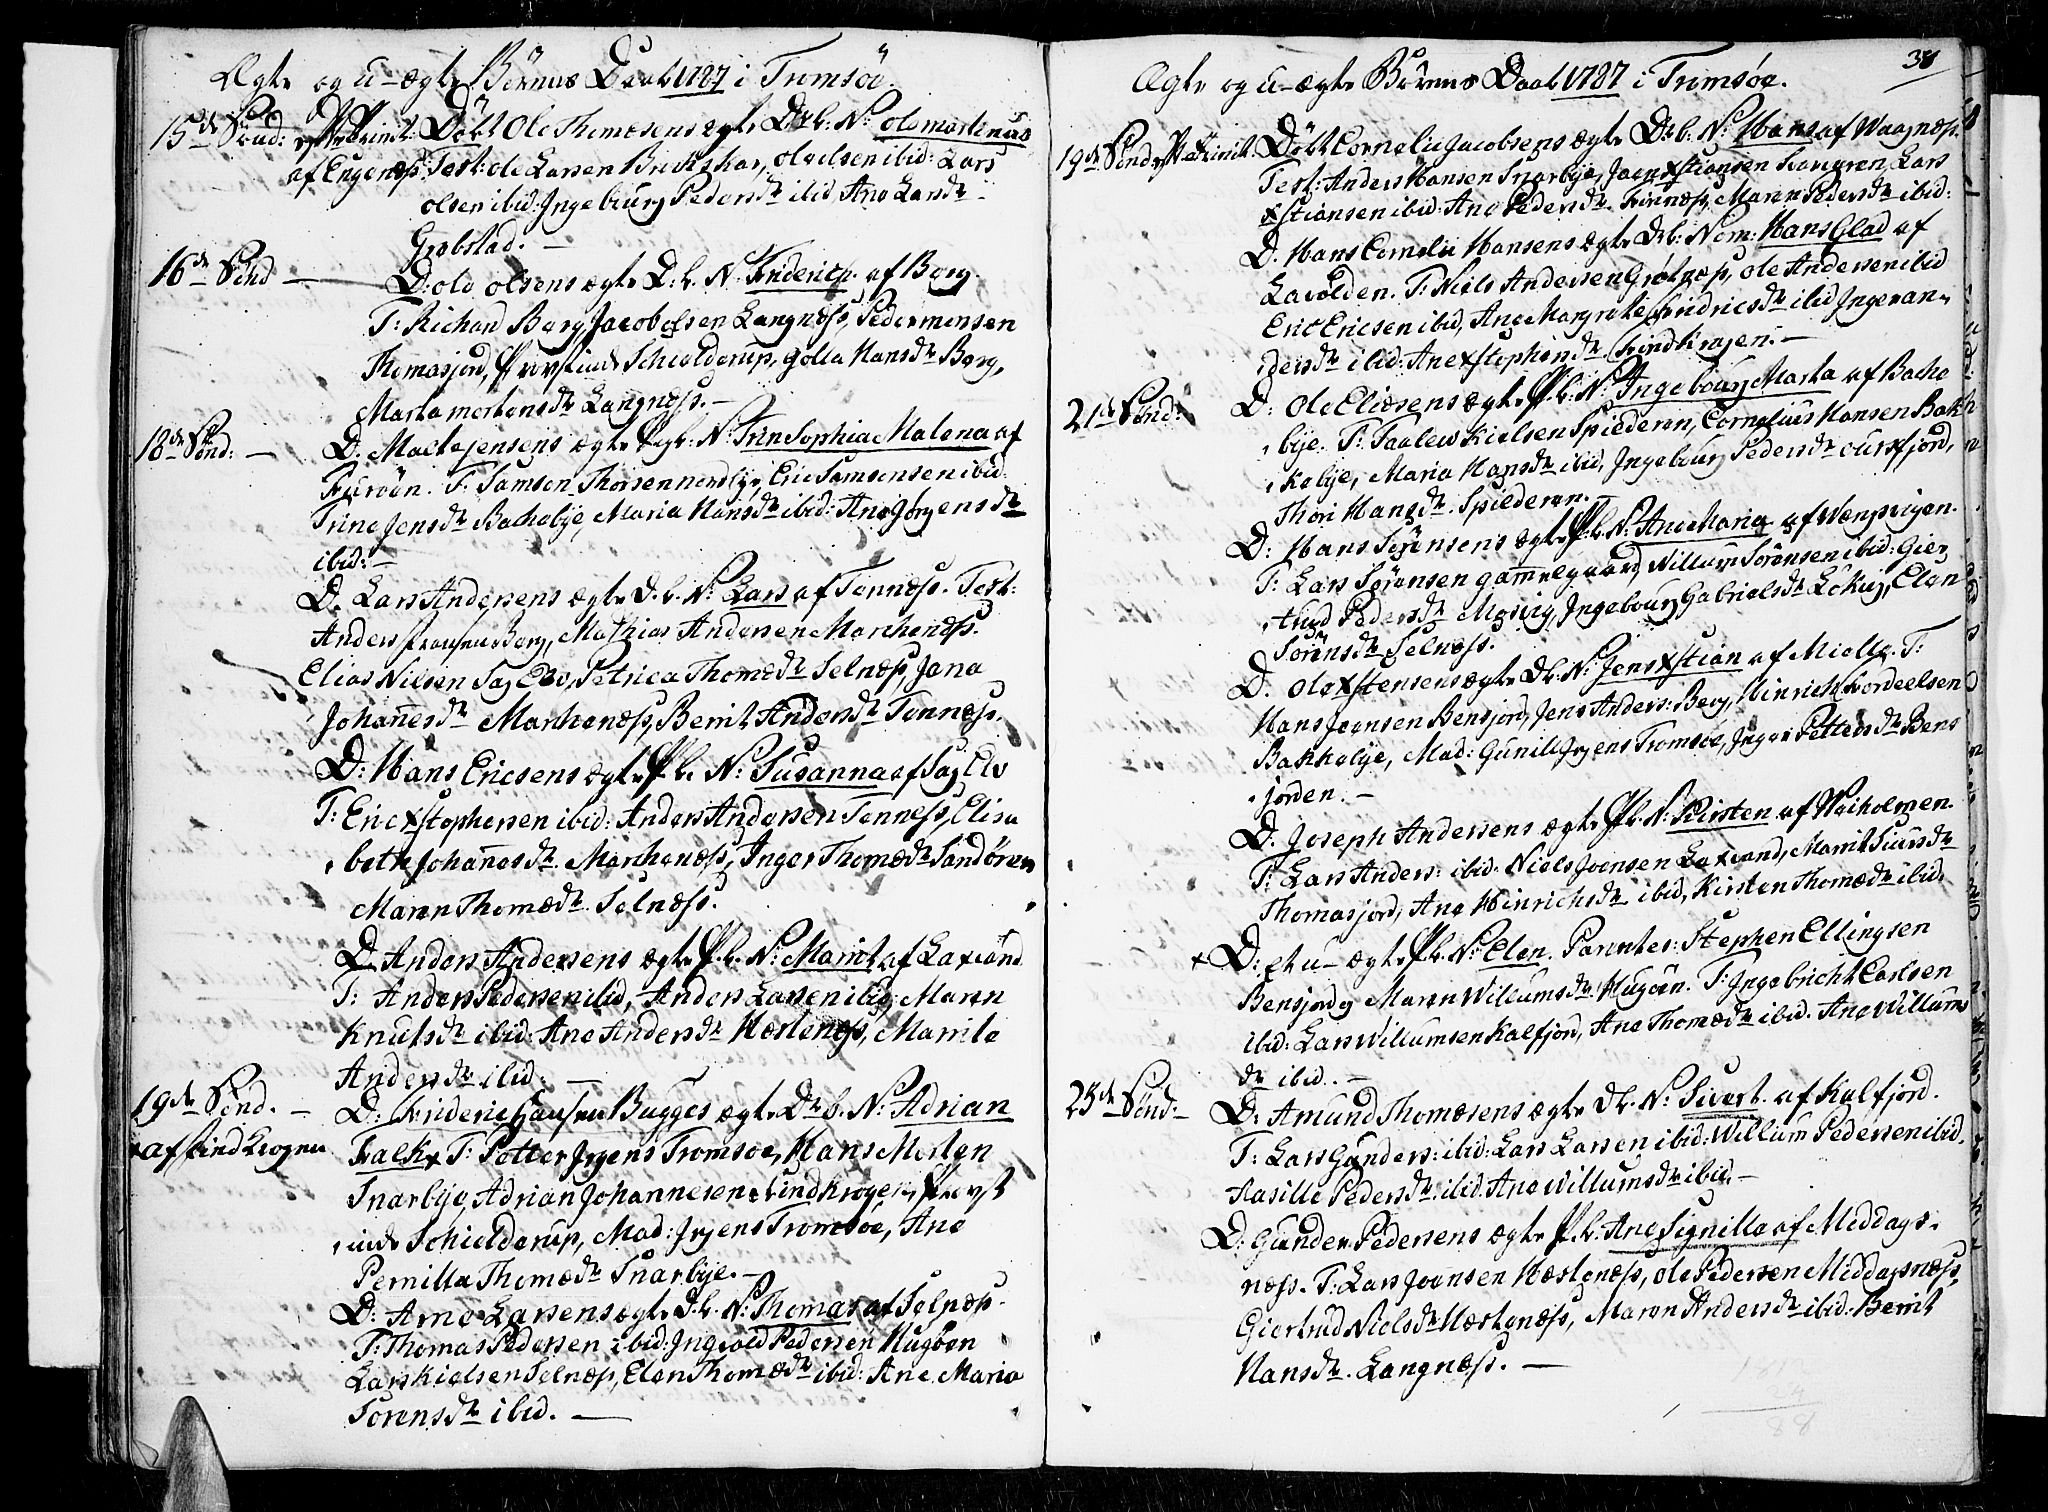 Ægte og u-ægte Børnes Daab 1787 i Trmsöe.
15de Sönd: p: Trinit: Döbt Ole Thomæsens ægte D:b: N: Ole Martinus
af Engenæs: Test: Ole Larsen Bredskar, Ole Olsen ibid: Lars
Olsen ibid: Ingebourg Pedersdtr ibid, Ane Larsdtr
Grøbstad. —
16de Sönd — D: Ole Olsens ægte D:b: N: Friderich af Berg.
T: Richard Berg, Jacob Olsen Langnæss, Peder Monsen
Thomasjord, Provstinde Schielderup, Golla Hansdtr Berg,
Marta Mortensdtr Langnæss. —
18de Sönd: — D: Mathis Jensens ægte P:gb: N: Trin Sophia Malena af
T: Samson Thorsen Nordbye, Eric Samsonsen ibid
Trine Jensdtr Bachebye, Maria Hansdtr ibid: Ane Jörgensdtr
ibid: —
D: Lars Andersens ægte D.b. N: Lars af Tennæss. Test:
Anders Fransen Berg, Mathias Andersen Marckenæss.
Elias Nilsen Sag Elv, Petrica Thomædtr Selnæss, Jana
Johannesdtr Marckenæss, Berit Andersdtr Tennæss.
D: Hans Ericsens ægte P.b. N: Susanna af Sag Elv
T: Eric Xstophersen ibid: Anders Andersen Tenness, Elisa-
beth Johannesdtr Marckenæss, Inger Thomædtr Sandören
Maren Thomædtr Selnæss.
D. Anders Andersens ægte P.b. N: Marrit af Laxvand
T: Anders Pedersen ibid, Anders Larsen ibid, Maren
Knutsdtr ibid: Ane Andersdtr Hestenæss, Marrite
Andersdtr ibid: —
19de Sönd. — D: Frideric Hansen Bugges ægte Dr b. N: Adrian
af Findkrogen Falk. T: Petter Jrgens Tromsöe, Hans Morten
Snarbye, Adrian Johannesen Findkrogen, Provst-
inde Schielderup, Mad: Jrgens Tromsöe, Ane
Pernilla Thomædtr Snarbye. —
D: Arne Larsens ægte D.b. N: Thomas af Selnæs.
T: Thomas Pedersen ibid: Ingvold Pedersen Hugöen
Lars Kielsen Selnæs, Elen Thomædtr ibid: Ane Maria
Sörensdtr ibid. —
38
Ægte og u-ægte Börnes Daab 1787 i Trmsöe.
19de Sönd. p: Trinit. Döbt Cornelii Jacobsens ægte Dr b. N: Hans af Waagnæs.
Test: Anders Hansen Snarbye, Joen Xstiansen Lars
Xstiansen ibid: Ane Pedersdtr Finnæs, Maren Pedersdtr ibid:
D. Hans Cornelii Hansens ægte D:b: Nom: Hans Glad af
Lavolden. T: Niels Andersen Grötnæs, Ole Andersen ibid
Eric Ericsen ibid, Ane Margrete Fridricsdtr ibid Inger An-
dersdtr ibid: Ane Xstophersdtr Findkrogen. —
21de Sönd: D: Ole Eliæsens ægte P.b: N: Ingebourg Marta af Backe
bye. T: Taalew Kielsen Spilderen, Cornelius Hansen Bak-
kebye, Maria Hansdtr ibid, Ingebourg Pedersdtr Oursfjord,
Thori Hansdtr Spilderen.
D: Hans Sörensens ægte P.b N: Ane Maria af Wængsvigen.
T: Lars Sörensen Gammelgaard, Willum Sörensen ibid: Gier-
trud Pedersdtr Mosvig, Ingebourg Gabrielsdtr Lökvig, Elen
Sörensdtr Selnæss.
D. Ole Xstensens ægte D.b. N: Jens Xstian af Mielle. T:
Hans Joensen Bensjord, Jens Anders: Berg, Hinrich Fordeelsen
Bakkebye, Mad: Gunild Jrgens Tromsöe, Inger Pettersdtr Bens-
jorden. —
D. Joseph Andersens ægte P.b. N: Kirsten af Weiholmen.
T: Lars Anders: ibid. Niels Joensen Laxvand, Marrit Siursdtr
Thomasjord, Ane Hinrichsdtr ibid, Kirsten Thomædtr ibid.
x D: et u-ægte P.b. N: Elen. Parentes: Stephen Ellingsen
Bensjord og Maren Willumsdtr Hugöen. T: Ingebricht Carlsen
ibid: Lars Willumsen Kalfjord, Ane Thomædtr ibid. Ane Willums-
dtr ibid. —
23de Sönd: — D: Amund Thomæsens ægte D.b. N: Sivert af Kalfjord.
T: Lars Gunders: ibid: Lars Larsen ibid: Willum Pedersen ibid.
Aasille Pedersdtr. ibid. Ane Willumsdtr ibid. —
D: Gunder Pedersens ægte P.b. Ane Signilla af Middags-
næss. T: Lars Joensen Hestenæss, Ole Pedersen Middagsnæss,
Giertrud Nielsdtr Hestenæss, Maren Andersdtr ibid: Berit
Hansdtr. Langnæss. —
88